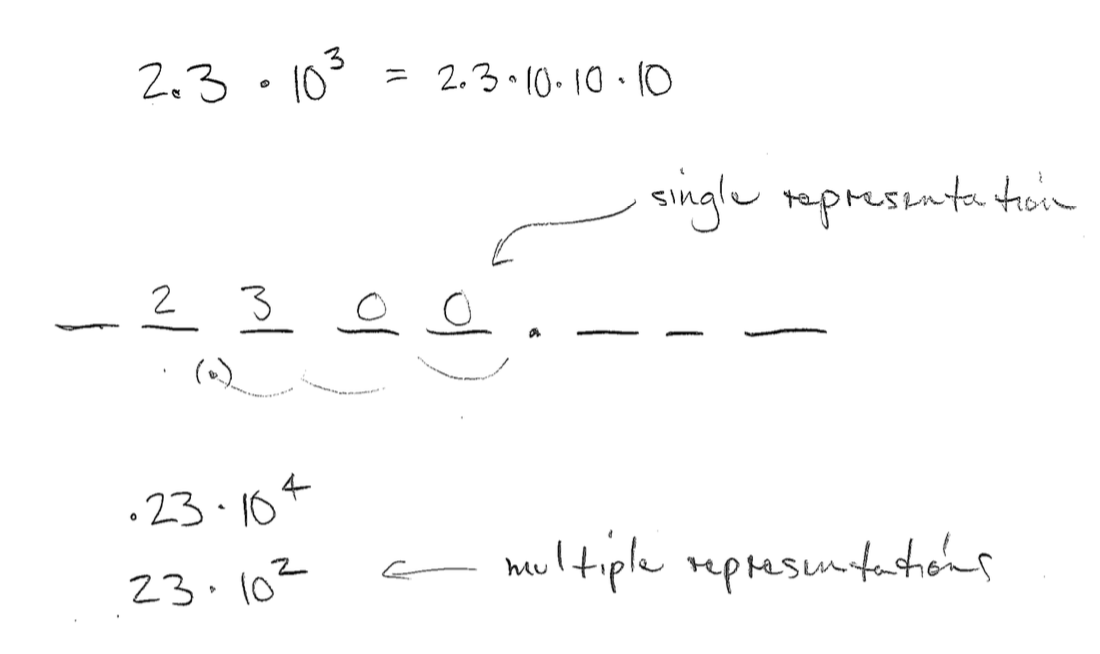 2.3 · 10³ = 2.3 · 10 · 10 · 10
single representation
_ 2 3 0 0 . _ _ _
(.)
.23 · 10⁴
23 · 10² ← multiple representations